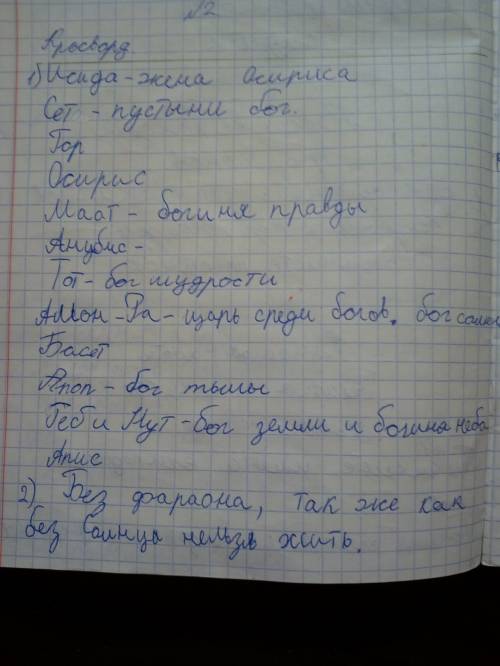 №2
Кросворд.
1) Исида - жена Осириса
Сет - пустыни бог.
Гор
Осирис
Маат - богиня правды
Анубис -
Тот - бог мудрости
Амон - Ра - царь среди богов. бог солн
Бастет
Апоп - бог тьмы
Геб и Нут - бог земли и богиня неба
Апис
2) Без фараона, так же как
без Солнца нельзя жить.